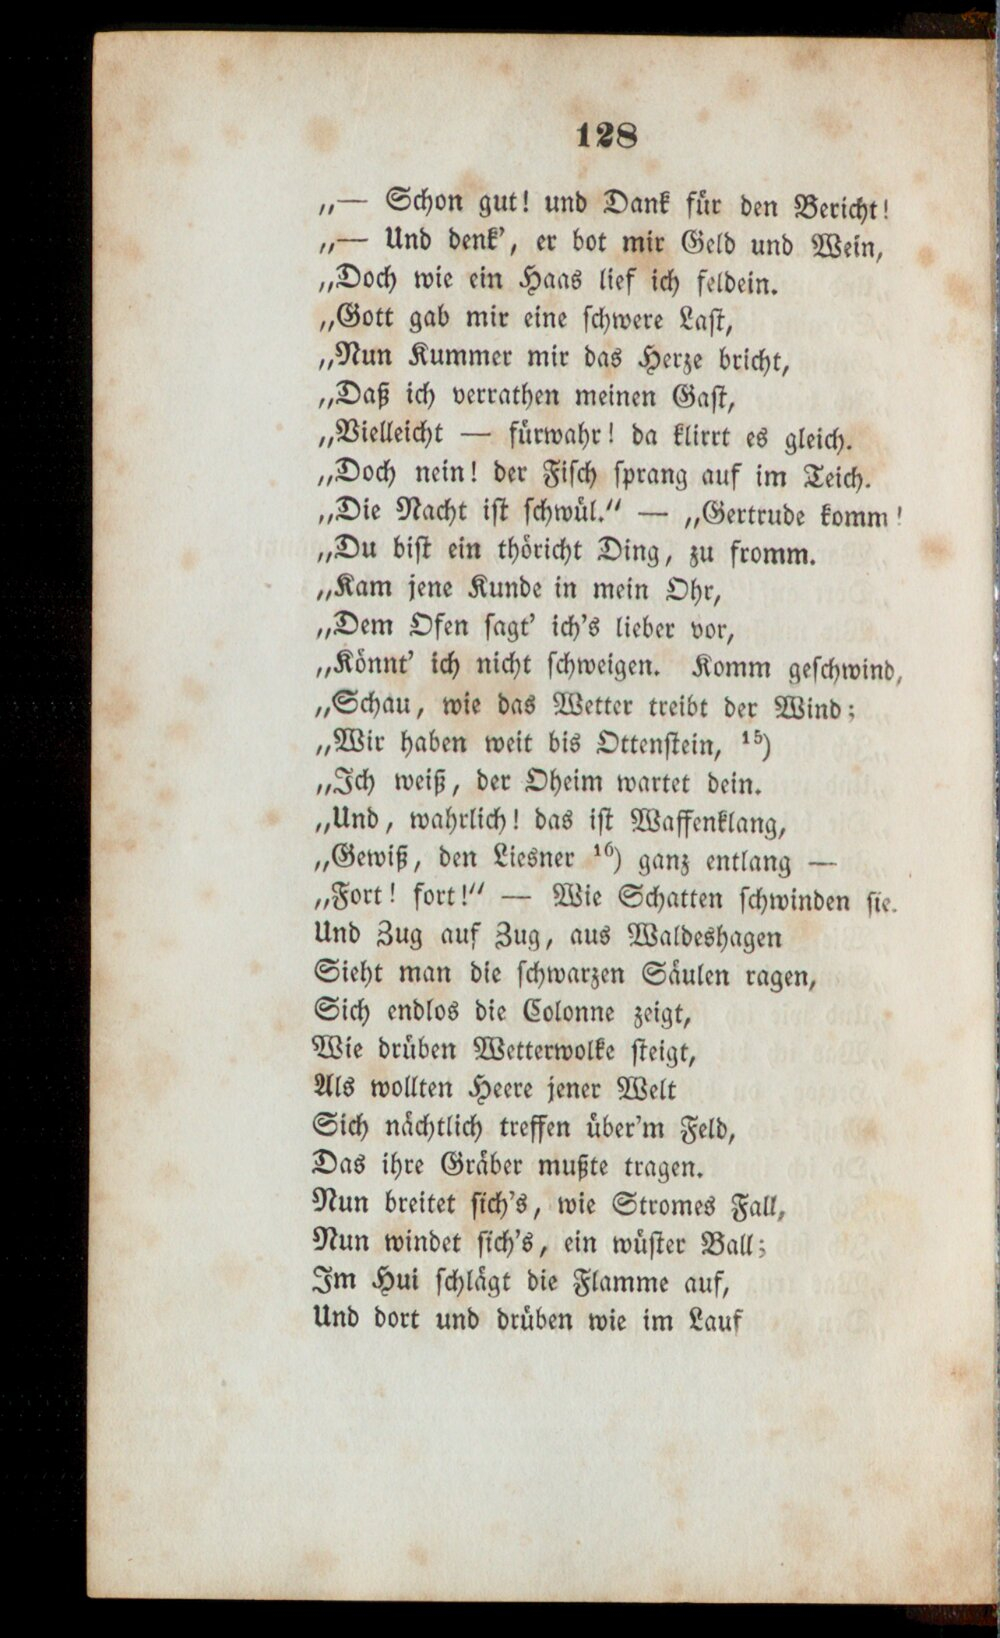 128
„— Schon gut! und Dank für den Bericht!
„— Und denk’, er bot mir Geld und Wein,
„Doch wie ein Haas lief ich feldein.
„Gott gab mir eine schwere Last,
„Nun Kummer mir das Herze bricht,
„Daß ich verrathen meinen Gast,
„Vielleicht — fürwahr! da klirrt es gleich.
„Doch nein! der Fisch sprang auf im Teich.
„Die Nacht ist schwül.“ — „Gertrude komm!
„Du bist ein thöricht Ding, zu fromm.
„Kam jene Kunde in mein Ohr,
„Dem Ofen sagt’ ich’s lieber vor,
„Könnt’ ich nicht schweigen. Komm geschwind,
„Schau, wie das Wetter treibt der Wind;
„Wir haben weit bis Ottenstein, ¹⁵)
„Ich weiß, der Oheim wartet dein.
„Und, wahrlich! das ist Waffenklang,
„Gewiß, den Liesner ¹⁶) ganz entlang —
„Fort! fort!“ — Wie Schatten schwinden sie.
Und Zug auf Zug, aus Waldeshagen
Sieht man die schwarzen Säulen ragen,
Sich endlos die Colonne zeigt,
Wie drüben Wetterwolke steigt,
Als wollten Heere jener Welt
Sich nächtlich treffen über’m Feld,
Das ihre Gräber mußte tragen.
Nun breitet sich’s, wie Stromes Fall,
Nun windet sich’s, ein wüster Ball;
Im Hui schlägt die Flamme auf,
Und dort und drüben wie im Lauf